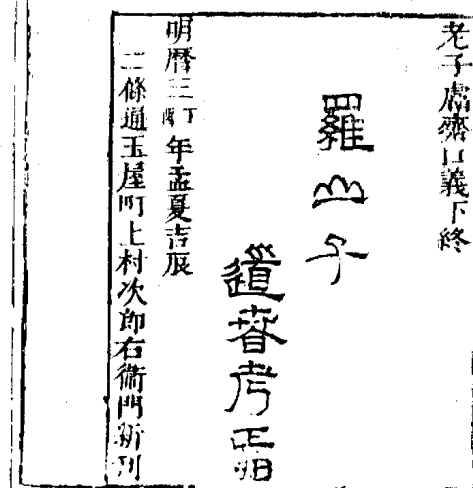 老子鬳齋口義下終
羅山子
道春考正
明暦三丁酉年孟夏吉辰
二條通玉屋町上村次郎右衛門新刊